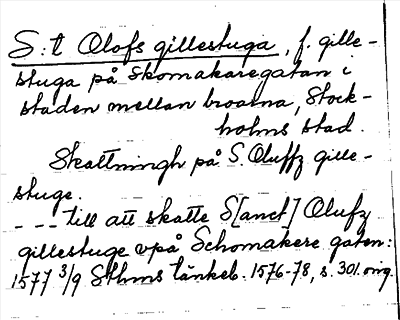 S:t Olofs gillestuga, f. gille-
stuga på Skomakaregatan i
staden mellan broarna, Stock-
holms stad.
Skattningh på S. Oluffz gille-
stuge.
- - - till att skatte S[anct] Olufz
gillestuge vpå Schomakere gaten:
1577 3/9 Sthms tänkeb. 1576-78, s. 301. orig.